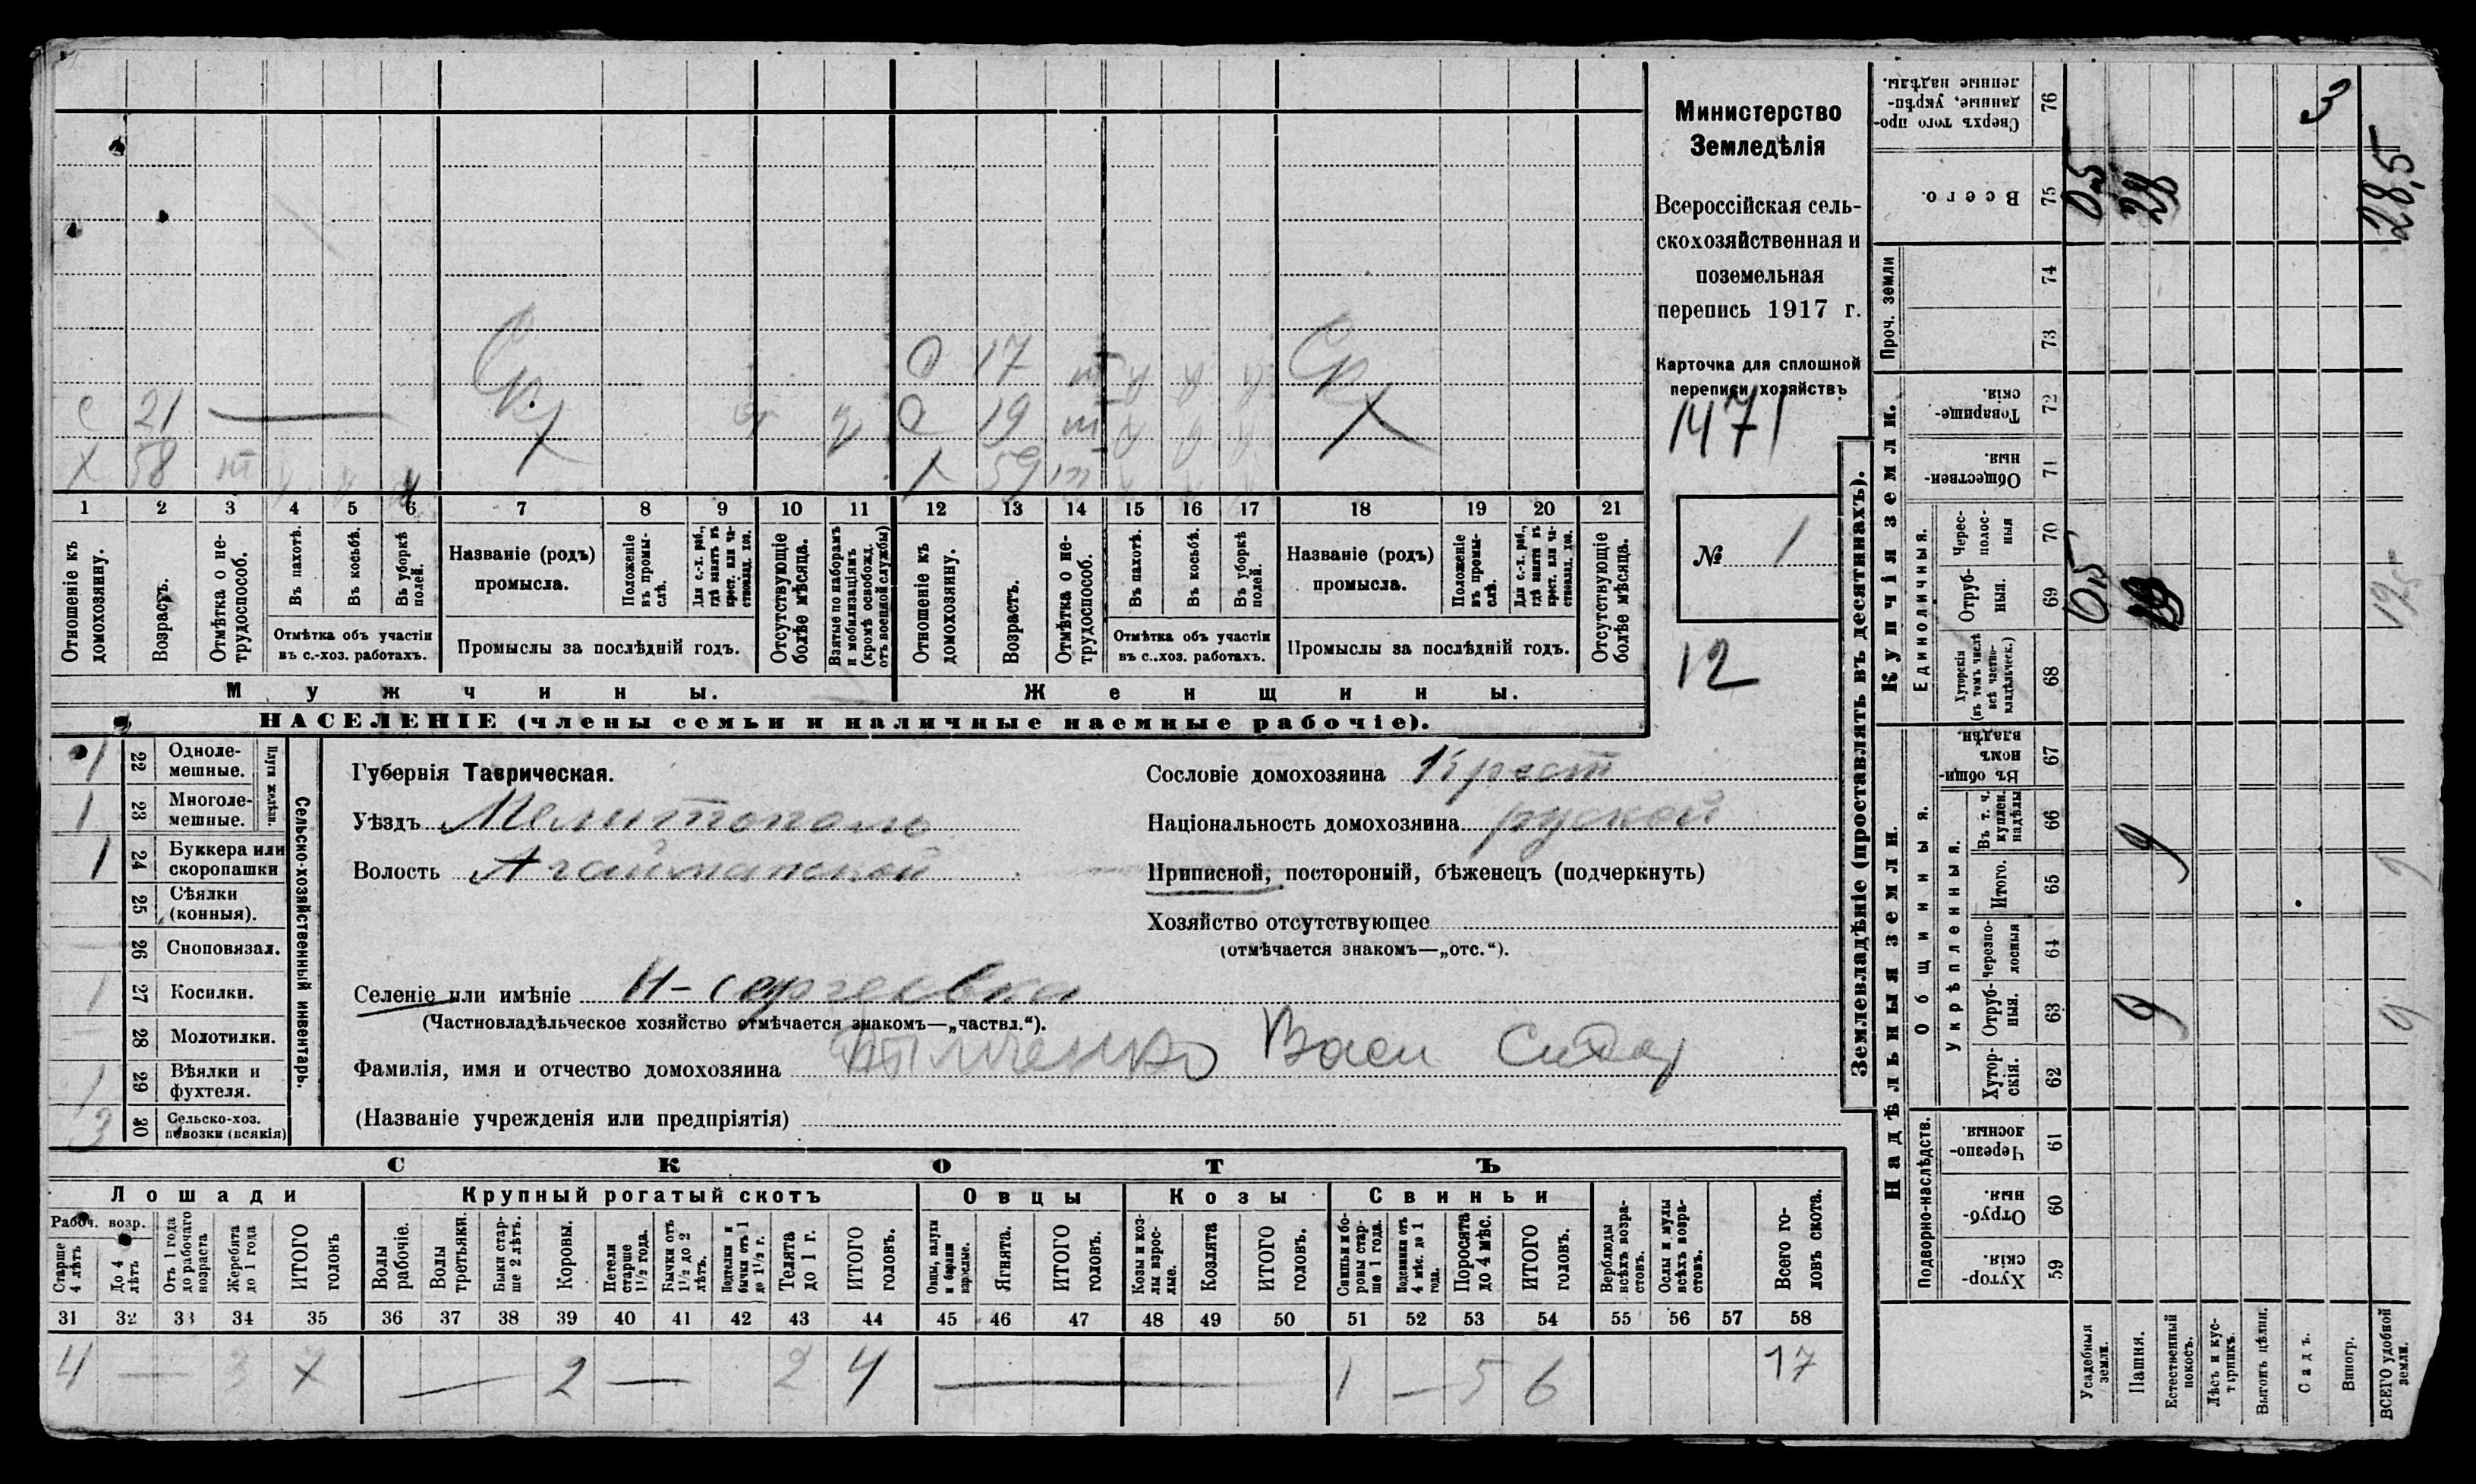 Министерство
Земледѣлія
Всероссійская сель-
скохозяйственная и
поземельная
перепись 1917 г.
Карточка для сплошной
переписи хозяйствъ
1471
№ 1
12
С 17 т
С 21 С 19 т
Х 58 т Х 59 т
1 2 3 4 5 6 7 8 9 10 11 12 13 14 15 16 17 18 19 20 21
Отношеніе къ домохозяину.
Возрастъ.
Отмѣтка о не-трудоспособ.
Въ пахотѣ.
Въ косьбѣ.
Въ уборкѣ полей.
Отмѣтка объ участіи
въ с.-хоз. работахъ.
Названіе (родъ)
промысла.
Положеніе въ промы-слѣ.
Для с.-х. раб., гдѣ занятъ въ крест. или ча-стновлад. хоз.
Промыслы за послѣдній годъ.
Отсутствующіе болѣе мѣсяца.
Взятые по наборамъ и мобилизаціямъ (кромѣ освобожд. отъ военной службы)
Отношеніе къ домохозяину.
Возрастъ.
Отмѣтка о не-трудоспособ.
Въ пахотѣ.
Въ косьбѣ.
Въ уборкѣ полей.
Отмѣтка объ участіи
въ с.-хоз. работахъ.
Названіе (родъ)
промысла.
Положеніе въ промы-слѣ.
Для с.-х. раб., гдѣ занята въ крест. или ча-стновлад. хоз.
Промыслы за послѣдній годъ.
Отсутствующіе болѣе мѣсяца.
Мужчины.
Женщины.
НАСЕЛЕНІЕ (члены семьи и наличные наемные рабочіе).
1 22 Одноле-мешные.
1 23 Многоле-мешные.
Плуги желѣзн.
1 24 Буккера или скоропашки
25 Сѣялки (конныя).
26 Сноповязал.
1 27 Косилки.
28 Молотилки.
1 29 Вѣялки и фухтеля.
3 30 Сельско-хоз. повозки (всякія)
Сельско-хозяйственный инвентарь.
Губернія Таврическая.
Уѣздъ Мелитополь
Волость Агайманской
Селеніе или имѣніе Н-сергеевка
(Частновладѣльческое хозяйство отмѣчается знакомъ—„частвл.“).
Фамилія, имя и отчество домохозяина Васи Сидор
(Названіе учрежденія или предпріятія)
Сословіе домохозяина Крест
Національность домохозяина руской
Приписной, посторонній, бѣженецъ (подчеркнуть)
Хозяйство отсутствующее
(отмѣчается знакомъ—„отс.“).
СКОТЪ
Лошади
Крупный рогатый скотъ
Овцы
Козы
Свиньи
Рабоч. возр.
Старше 4 лѣтъ
До 4 лѣтъ
Отъ 1 года до рабочаго возраста
Жеребята до 1 года
ИТОГО головъ
Волы рабочіе.
Волы третьяки.
Быки стар-ше 2 лѣтъ.
Коровы.
Нетели старше 1½ года.
Бычки отъ 1½ до 2 лѣтъ.
Подтелки и бычки отъ 1 до 1½ г.
Телята до 1 г.
ИТОГО головъ.
Овцы, валухи и бараны взрослые.
Ягнята.
ИТОГО головъ.
Козы и коз-лы взрос-лые.
Козлята
ИТОГО головъ.
Свиньи и бо-ровы стар-ше 1 года.
Подсвинки отъ 4 мѣс. до 1 года.
Поросята до 4 мѣс.
ИТОГО головъ.
Верблюды всѣхъ возра-стовъ.
Ослы и мулы всѣхъ возра-стовъ.
Всего го-ловъ скота.
31 32 33 34 35 36 37 38 39 40 41 42 43 44 45 46 47 48 49 50 51 52 53 54 55 56 57 58
4 — 3 7 — 2 — 2 4 — 1 — 5 6 17
Землевладѣніе (проставлять въ десятинахъ).
Надѣльныя земли.
Купчія земли.
Проч. земли
Подворно-наслѣдств.
Общинныя.
Укрѣпленныя.
Единоличныя.
Хутор-скія. 59
Отруб-ныя. 60
Черезпо-лосныя. 61
Хутор-скія. 62
Отруб-ныя. 63
Черезпо-лосныя 64
Итого. 65
Въ т. ч. куплен. надѣлы 66
Въ общин-номъ владѣн. 67
Хуторскія (въ томъ числѣ всѣ частно-владѣльческ.) 68
Отруб-ныя. 69
Черес-полос-ныя 70
Обществен-ныя. 71
Товарище-скія. 72
73
74
Всего. 75
Сверхъ того про-данные, укрѣп-ленные надѣлы. 76
Усадебныя земли. 0,5 0,5
Пашня. 9 9 19 28
Естественный покосъ.
Лѣсъ и кус-тарникъ.
Выгонъ цѣлин.
Садъ.
3
Виногр.
ВСЕГО удобной земли. 9 9 19,5 28,5